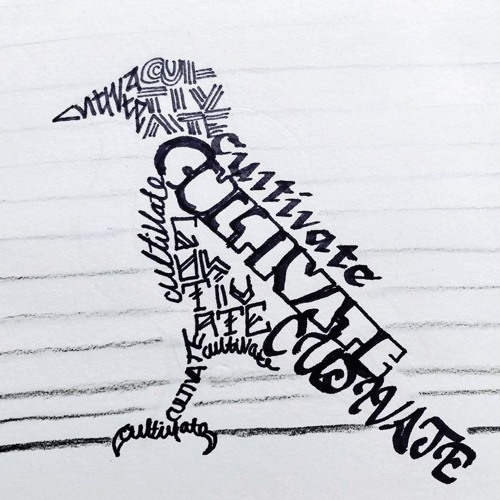 cultivate
CULTIVATE
cultivate
CULTIVATE
cultivate
CULTIVATE
cultivate
CULTIVATE
CULTIVATE
cultivate